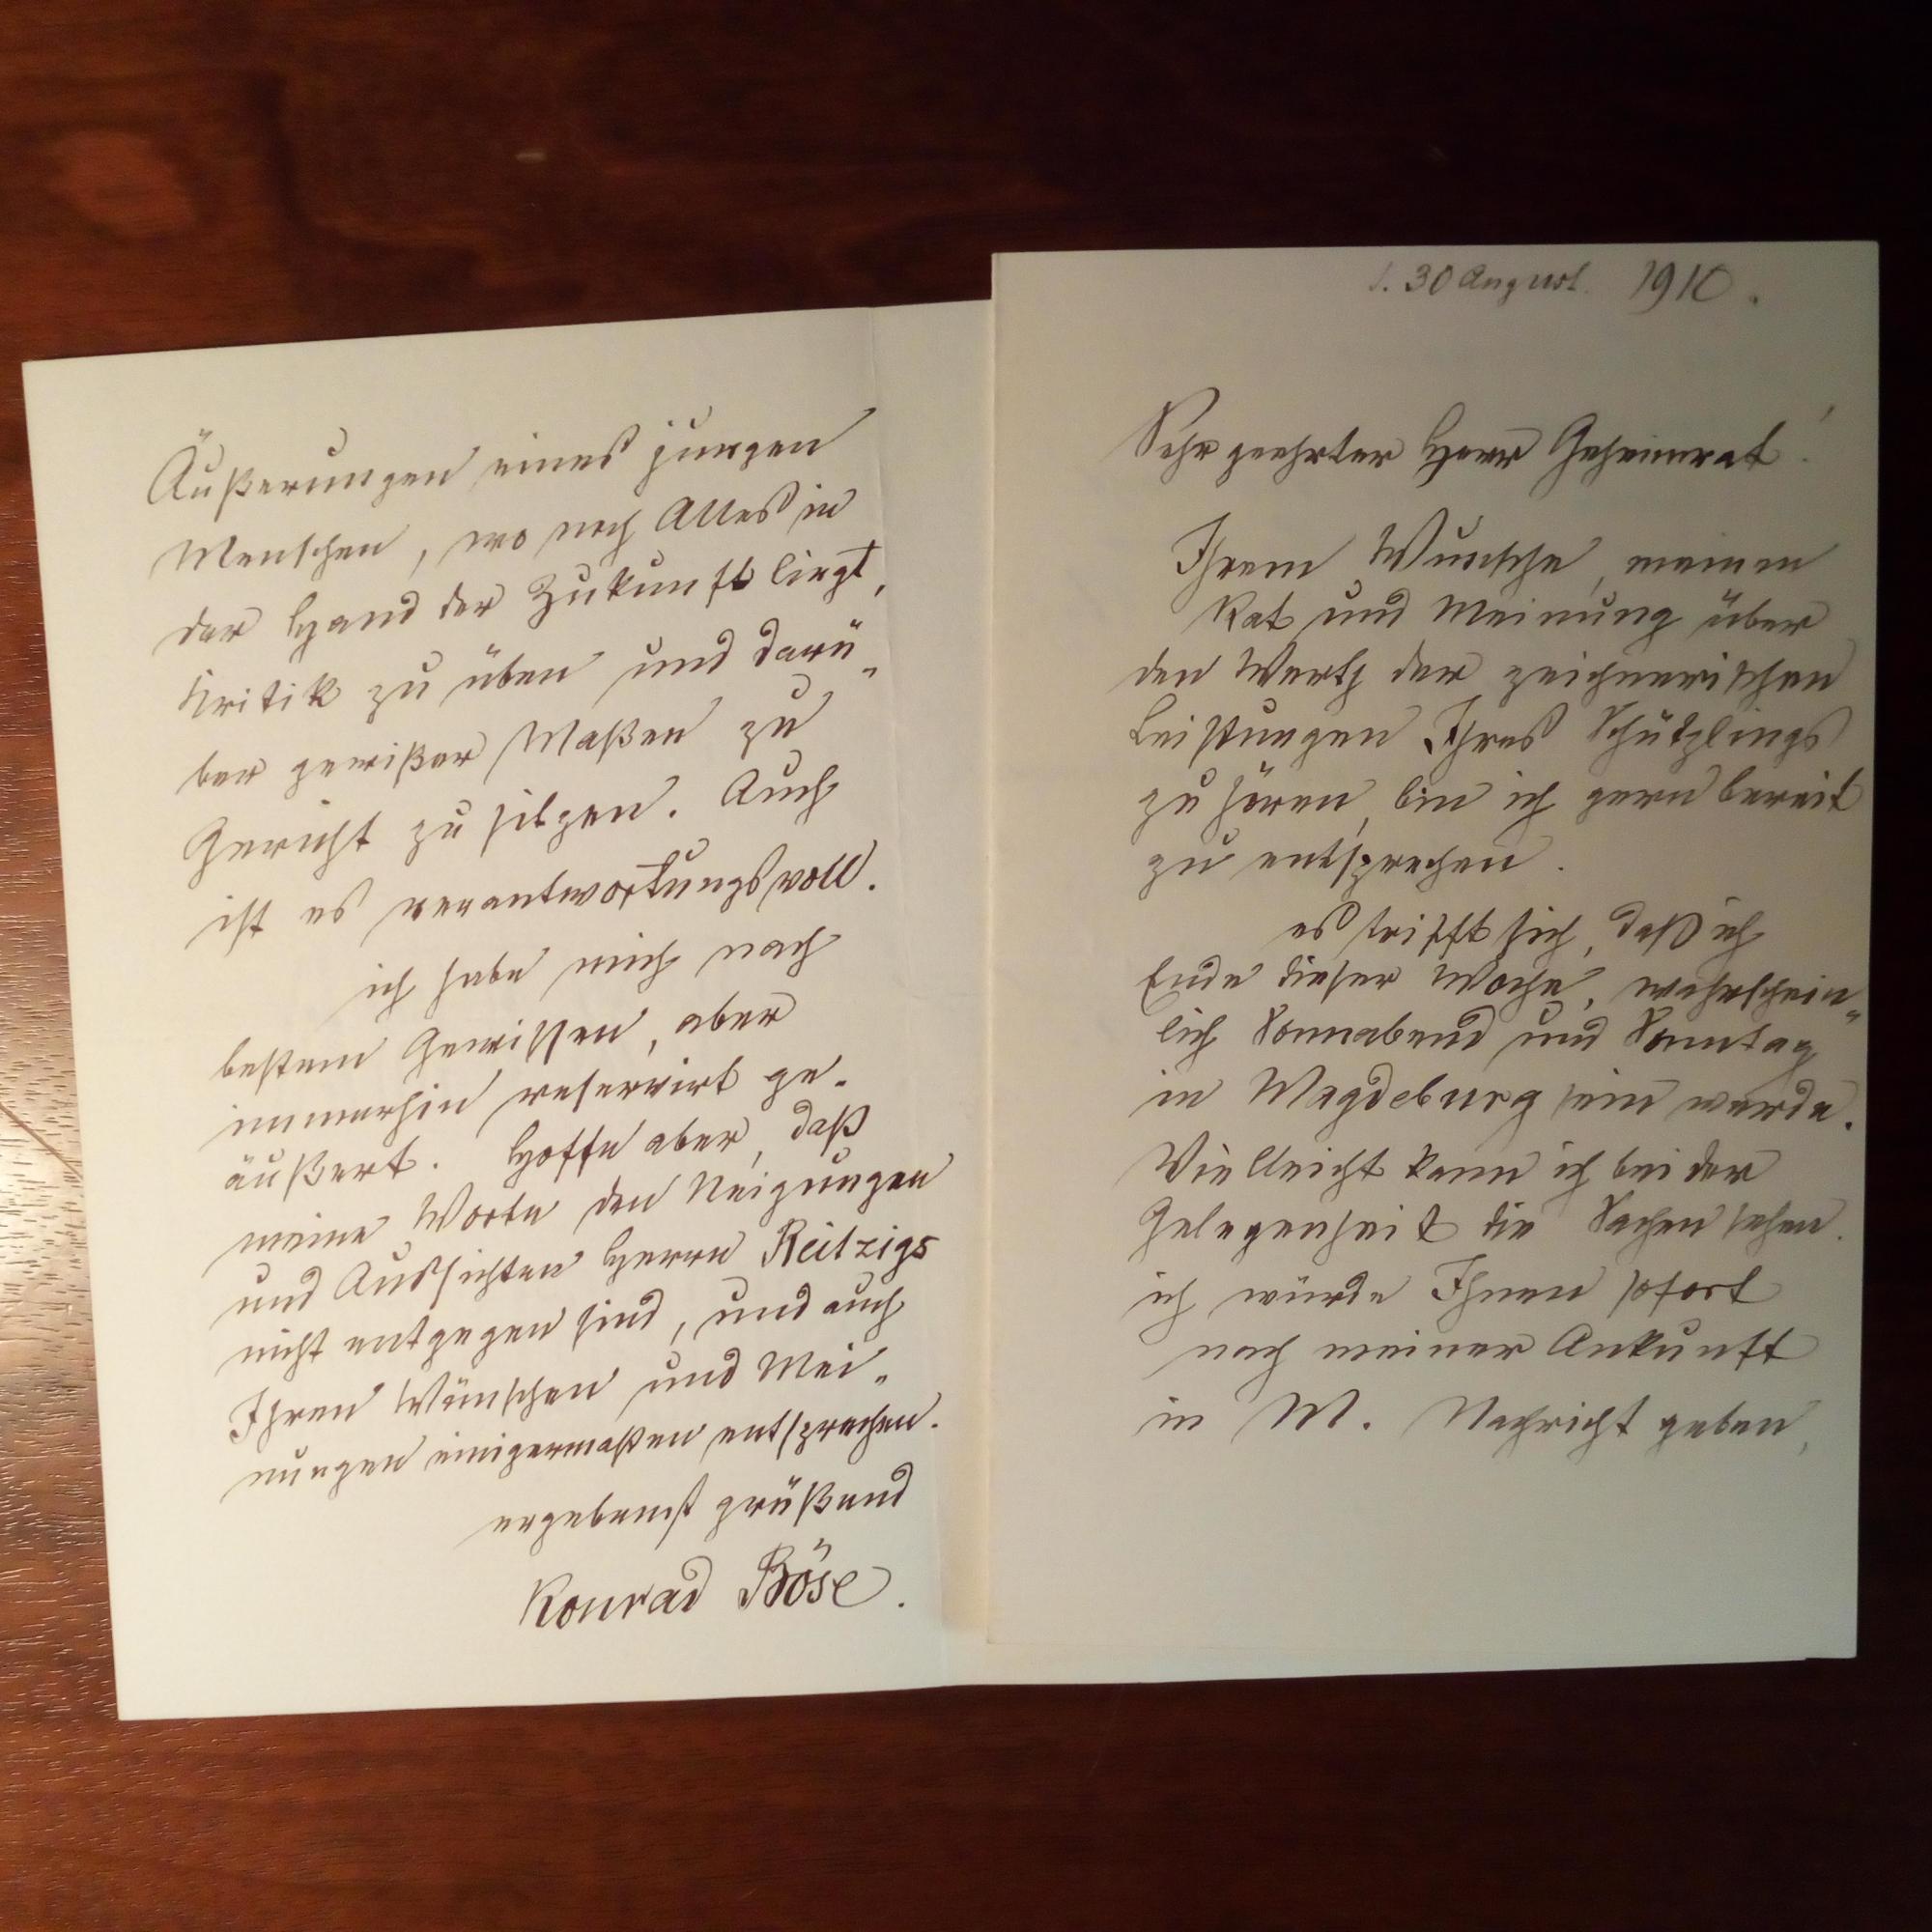 Äußerungen eines jungen
Menschen, wo noch Alles in
der Hand der Zukunft liegt,
Kritik zu üben und darü„
ber gewißer Maßen zu
Gericht zu sitzen. Auch
ist es verantwortungsvoll.
ich habe mich nach
bestem Gewissen, aber
immerhin reservirt ge-
äußert. Hoffe aber, daß
meine Worte den Neigungen
und Aussichten Herrn Reitzigs
nicht entgegen sind, und auch
Ihren Wünschen und Mei„
nungen einigermaßen entsprechen.
ergebenst grüßend
Konrad Böse.
30 August. 1910.
Sehr geehrter Herr Geheimrat!
Ihrem Wunsche, meinen
Rat und Meinung über
den Werth der zeichnerischen
Leistungen Ihres Schützlings
zu hören, bin ich gern bereit
zu entsprechen.
es trifft sich, daß ich
Ende dieser Woche, wahrschein„
lich Sonnabend und Sonntag
in Magdeburg sein werde.
Vielleicht kann ich bei der
Gelegenheit die Sachen sehen.
ich würde Ihnen sofort
nach meiner Ankunft
in M. Nachricht geben,